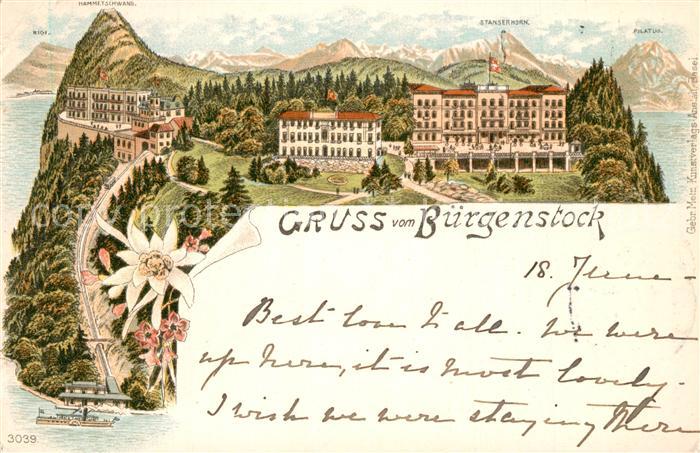 HAMMETSCHWAND.
RIGI.
STANSERHORN.
PILATUS.
Gebr. Metz, Kunstverlags-Anstalt, Basel.
GRUSS vom Bürgenstock
18. June -
Best love to all. We were
up here, it is most lovely.
I wish we were staying there
3039